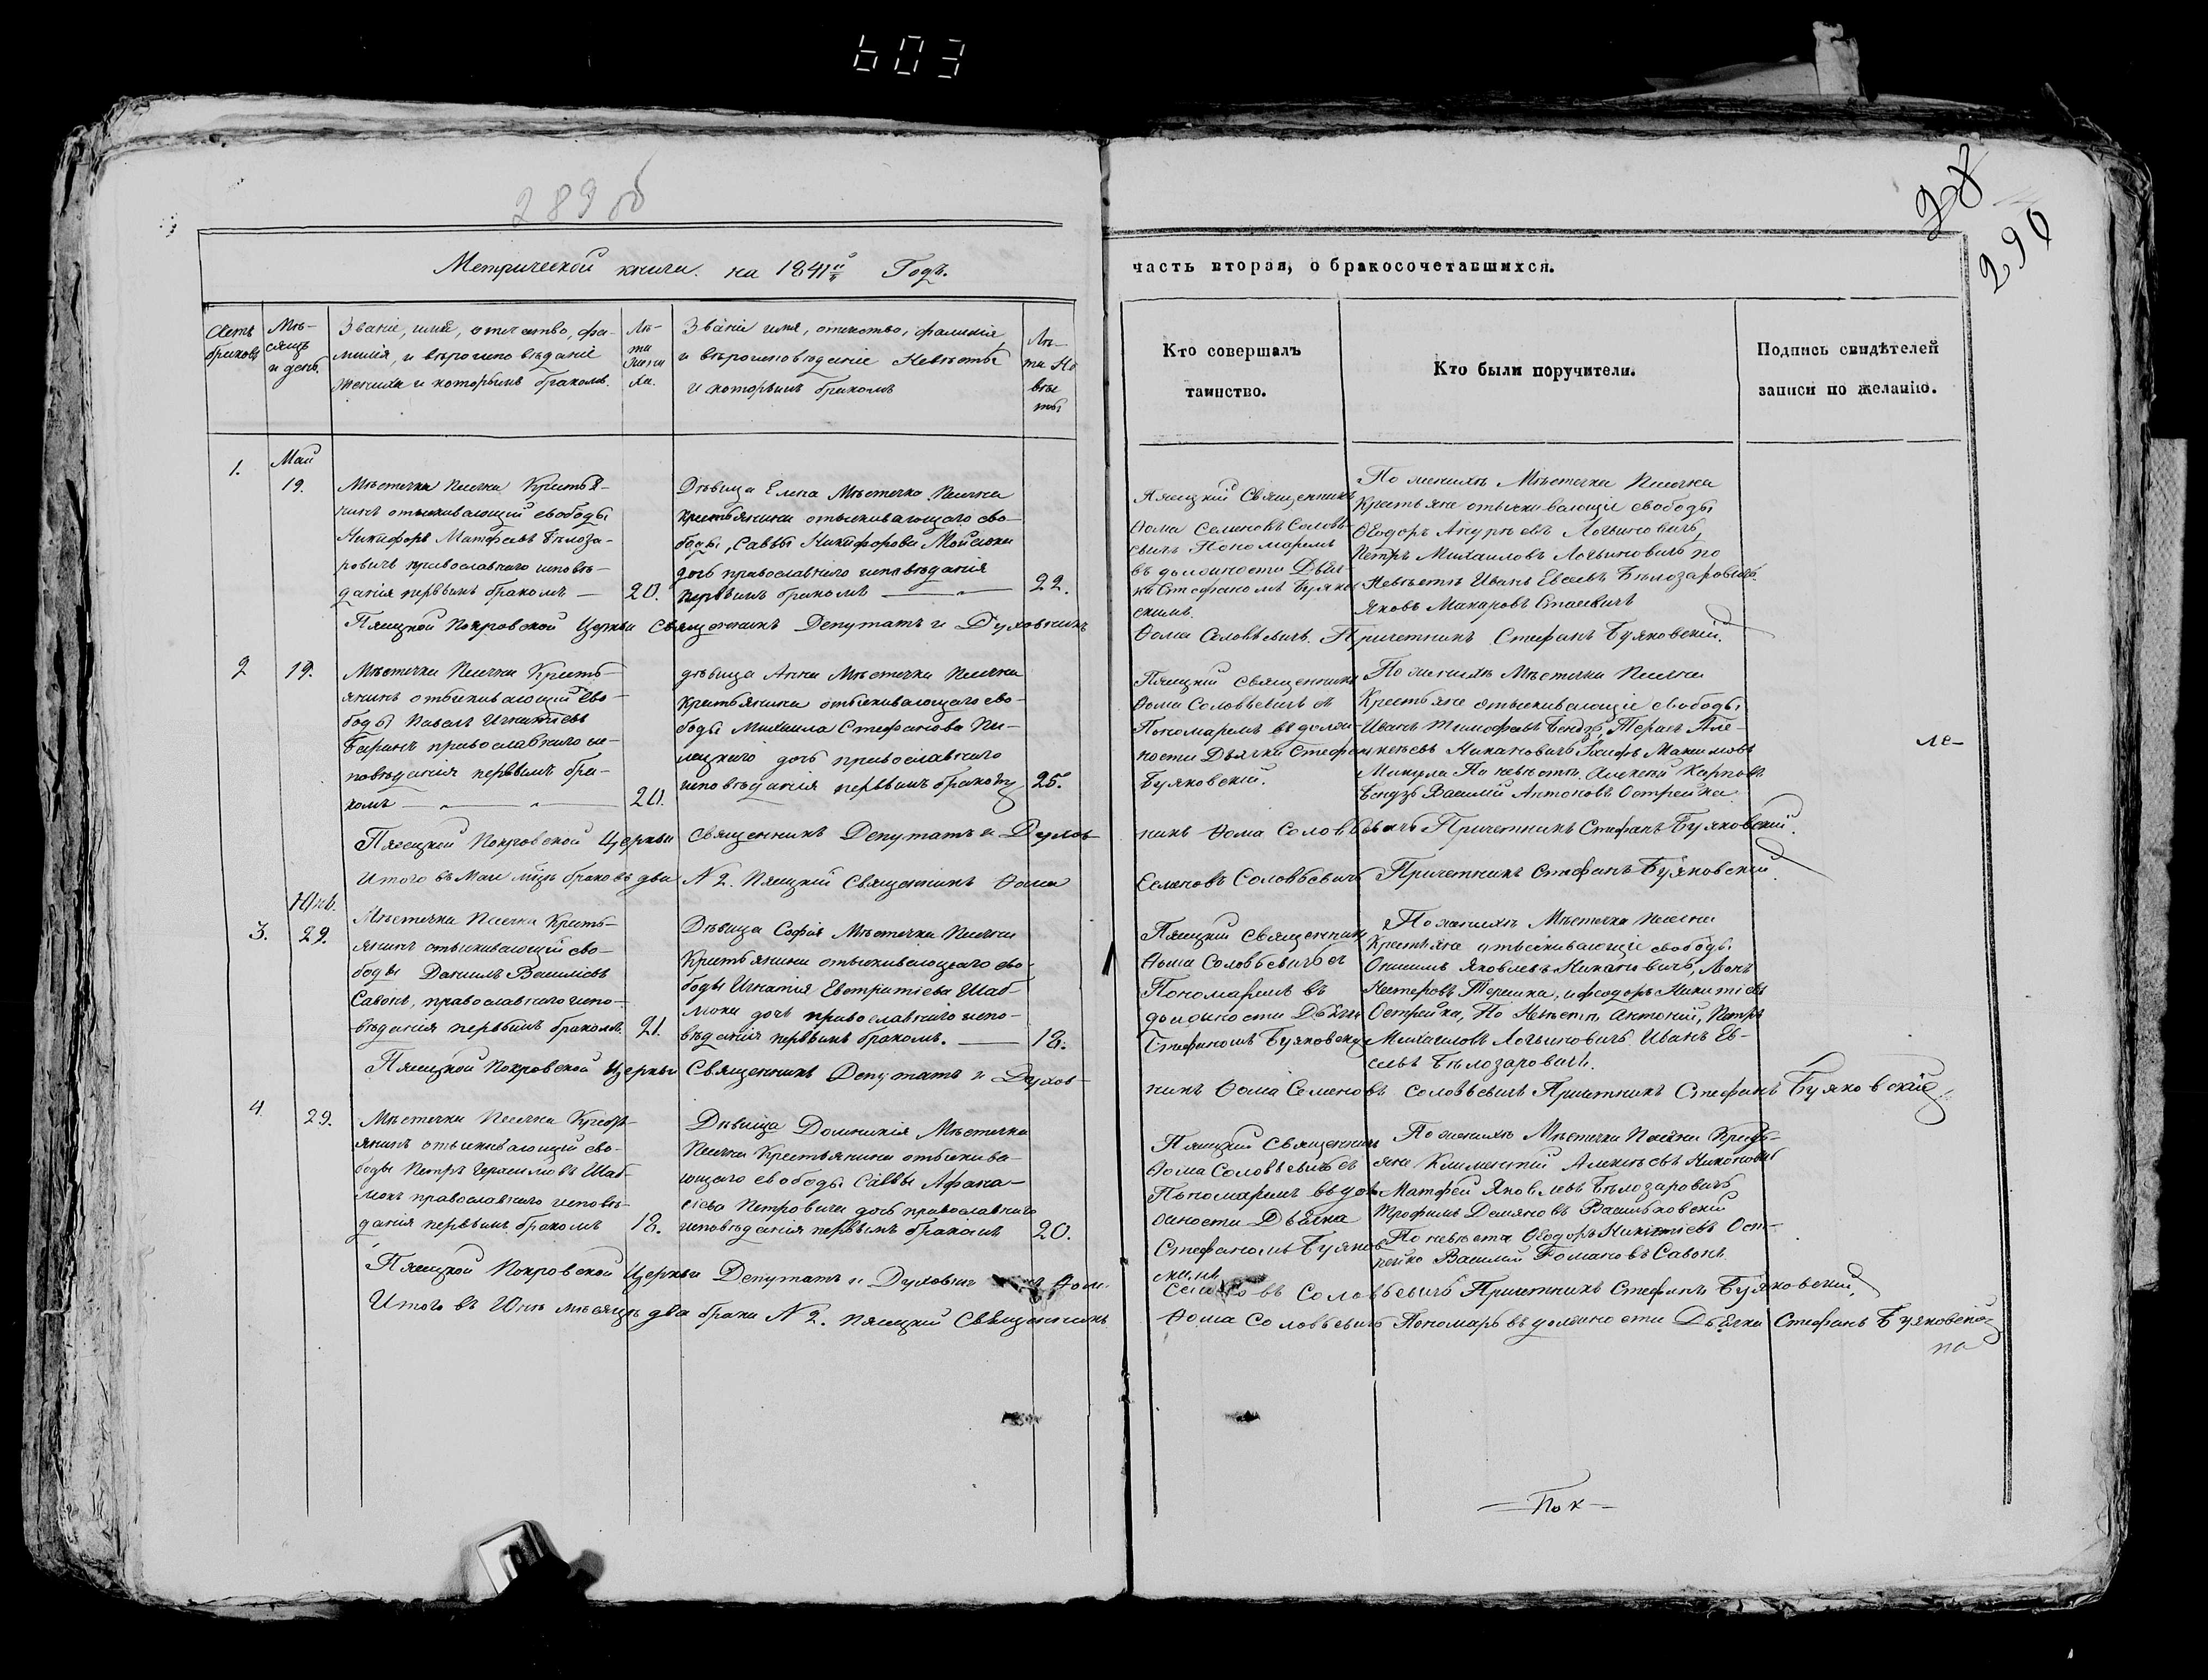 603
289 об
28
290
Метрической книги. на 1841й Годъ.
часть вторая, о бракосочетавшихся.
Счетъ браковъ
Мѣ-
сяцъ
и день.
Званіе, имя, отечество, фа-
милія, и вѣроисповѣданіе
жениха и которымъ бракомъ.
Лѣ-
та
Жени
ха.
Званіе имя, отечество, фамилія,
и вѣроисповѣданіе Невѣсты
и которымъ бракомъ
Лѣ-
та Не
вѣс
ты
Кто совершалъ
таинство.
Кто были поручители.
Подпись свидѣтелей
записи по желанію.
1.
Май
19.
Мѣстечка Песчка Крестья-
нинъ отыскивающій свободы
Никифоръ Матфеевъ Бѣлоза-
ровичъ православнаго исповѣ-
данія первымъ бракомъ —
20.
Дѣвица Елена Мѣстечка Песчка
Крестьянина отыскивающаго сво-
боды, Саввы Никифорова Мойсюка
дочь православнаго исповѣданія
первымъ бракомъ —
22.
Пясецкій Священникъ
Ѳома Семеновъ Соловь-
евичъ Пономаремъ
въ должности Дьяч-
ка Стефаномъ Буяков
скимъ.
По женихѣ Мѣстечка Песчка
Крестьяне отыскивающіе свободы
Ѳеодоръ Андреевъ Логвиновичъ,
Петръ Михаиловъ Логвиновичъ по
Невѣстѣ Иванъ Евсеевъ Бѣлозаровичъ
Яковъ Макаровъ Стасевичъ
Пясецкой Покровской Церкви Священникъ Депутатъ и Духовникъ
Ѳома Соловьевичъ. Причетникъ Стефанъ Буяковскій.
2
19.
Мѣстечка Песчка Кресть-
янинъ отыскивающій сво-
боды Павелъ Игнатіевъ
Гаринъ православнаго ис-
повѣданія первымъ бра-
комъ —
20.
дѣвица Анна Мѣстечка Песчка
Крестьянина отыскивающаго сво-
боды Михаила Стефанова Пи-
лецкаго дочь православнаго
исповѣданія первымъ бракомъ
25.
Пясецкій священникъ
Ѳома Соловьевичъ съ
Пономаремъ въ долж-
ности Дьячка Стефан
Буяковскій.
По женихѣ Мѣстечка Песчка
Крестьяне отыскивающіе свободы
Иванъ Тимофеевъ Бендзь, Терасъ Але-
ксѣевъ Никановичъ Іосифъ Макимовъ
Микула По невѣстѣ. Алексѣй Карповъ
Бендзь Василій Антоновъ Острейка
ле-
Пясецкой Покровской Церкви Священникъ Депутатъ и Духов-
никъ Ѳома Соловьевичъ Причетникъ Стефанъ Буяковскій.
Итого въ Маи мѣсяцѣ браковъ два № 2. Пясецкій Священникъ Ѳома
Семеновъ Соловьевичъ Причетникъ Стефанъ Буяковскій.
3.
29.
Мѣстечка Песчка Кресть-
янинъ отыскивающій сво-
боды Данилъ Василіевъ
Савонь, православнаго испо-
вѣданія первымъ бракомъ.
21.
Дѣвица Софія Мѣстечка Песчки
Крестьянина отыскивающаго сво-
боды Игнатія Евстратіева Шаб-
люки дочь православнаго испо-
вѣданія первымъ бракомъ. —
18.
Пясецкій Священникъ
Ѳома Соловьевичъ съ
Пономаремъ въ
должности Дьячка
Стефаномъ Буяковски
По женихѣ Мѣстечка Песчки
Крестьяне отыскивающіе свободы
Онисимъ Яковлевъ Никановичъ, Леонъ
Нестеровъ Терешка, и феодоръ Никитіевъ
Острейка, По Невѣстѣ Антоній, Петръ
Михаиловъ Логвиновичъ Иванъ Ев-
сеевъ Бѣлозаровичъ.
Пясецкой Покровской Церкви Священникъ Депутатъ и Духов-
никъ Ѳома Семеновъ Соловьевичъ Причетникъ Стефанъ Буяковскій
4.
29.
Мѣстечка Песчка Кресть-
янинъ отыскивающій сво-
боды Петръ Герасимовъ Шаб-
люкъ православнаго исповѣ-
данія первымъ бракомъ
18.
Дѣвица Домникія Мѣстечка
Песчки Крестьянина отыскива-
ющаго свободы Саввы Афана-
сіева Петровича дочь православнаго
исповѣданія первымъ бракомъ
20.
Пясецкій Священникъ
Ѳома Соловьевичъ съ
Пономаремъ въ дол
жности Дьячка
Стефаномъ Буяков
скимъ
По женихѣ Мѣстечка Песчки Кресть-
яне Климентій Алексѣевъ Никоновичъ
Матфей Яковлевъ Бѣлозаровичъ
Трофимъ Демяновъ Васильковскій
По невѣстѣ Ѳеодоръ Никитіевъ Ост-
рейко Василій Романовъ Савонь
Пясецкой Покровской Церкви Депутатъ и Духовникъ Ѳома
Семеновъ Соловьевичъ Причетникъ Стефанъ Буяковскій.
Итого въ Юнѣ мѣсяцѣ два брака № 2. Пясецкій Священникъ
Ѳома Соловьевичъ Пономарь въ должности Дьячка Стефанъ Буяковскій
по
— Пок —